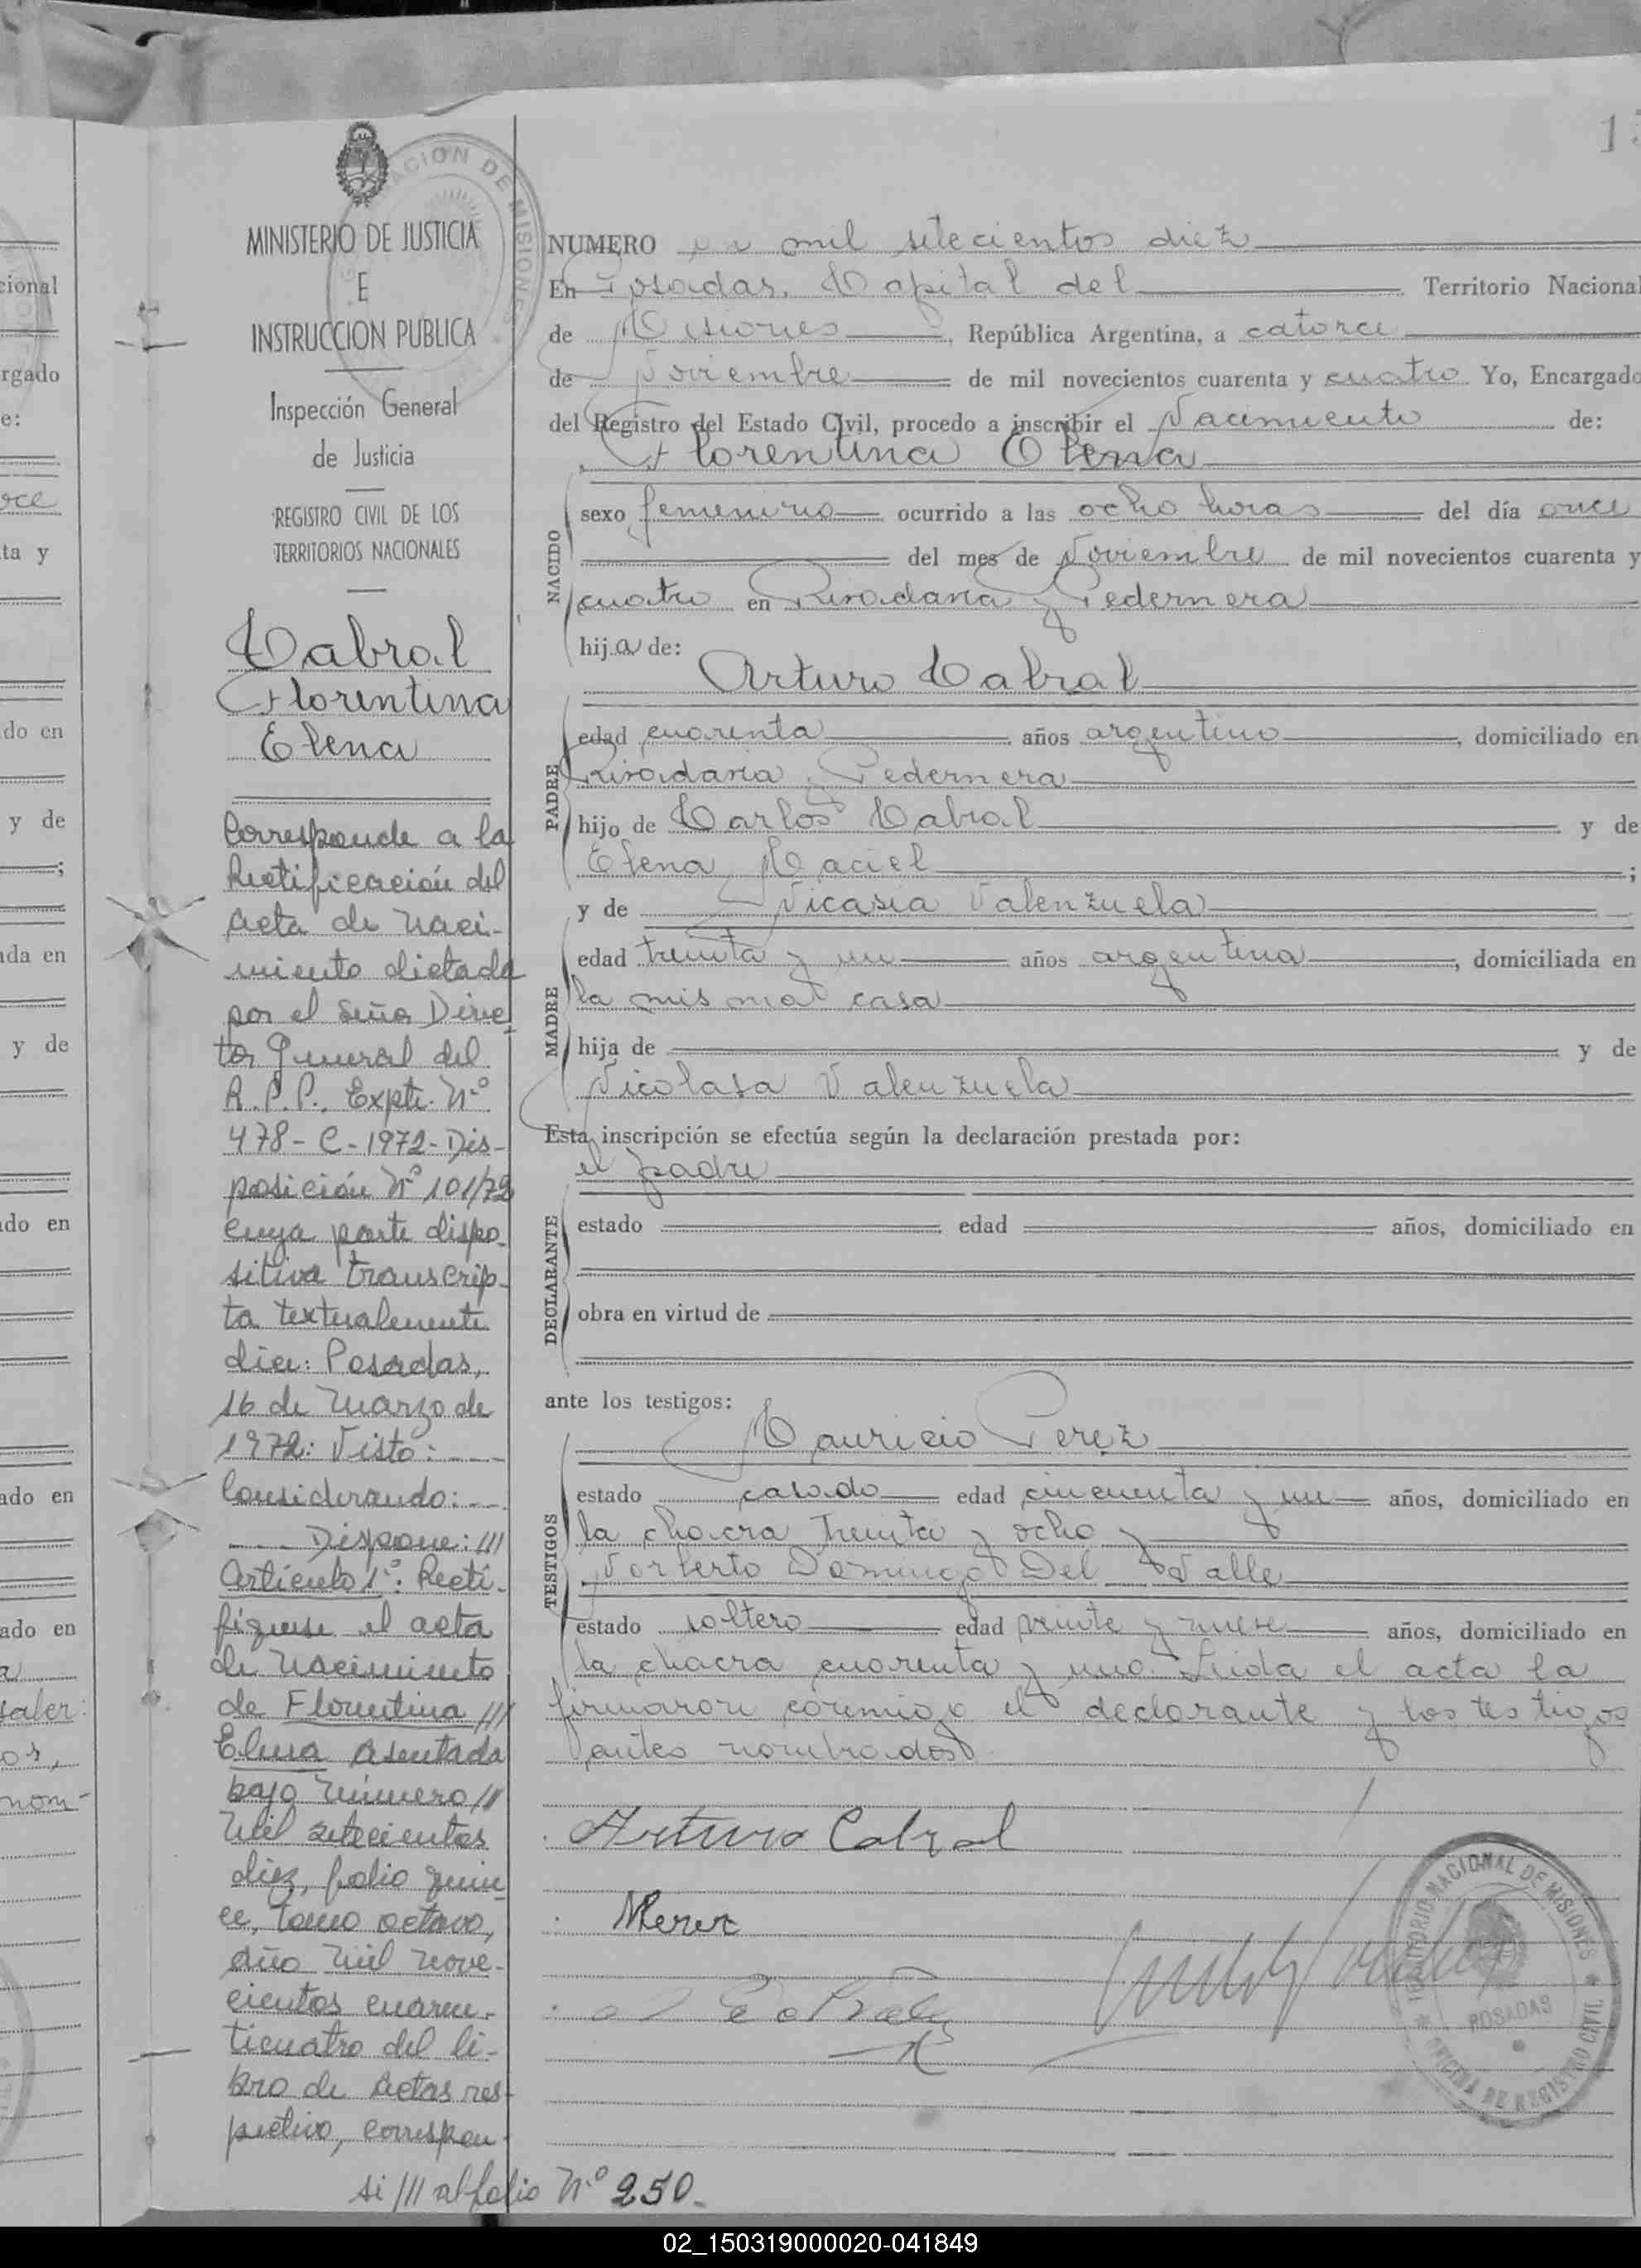 15
MINISTERIO DE JUSTICIA
E
INSTRUCCION PUBLICA
Inspección General
de Justicia
REGISTRO CIVIL DE LOS
TERRITORIOS NACIONALES
Cabral
Florentina
Elena
Corresponde a la
Rectificación del
acta de naci-
miento dictada
por el Señor Direc
tor General del
R.P.P. Expte. Nº
478-C-1972-Dis-
posición Nº 101/72
cuya parte dispo-
sitiva transcrip-
ta textualmente
dice: Posadas,
16 de Marzo de
1972: Visto: ....
Considerando: ...
.... Dispone: ///
Artículo 1º: Recti-
fíquese el acta
de Nacimiento
de Florentina ///
Elena asentada
bajo número ///
mil setecientos
diez, folio quin
ce, tomo octavo,
año mil nove-
cientos cuaren-
ticuatro del li-
bro de actas res-
pectivo, correspon-
si /// al folio Nº 250.
NUMERO un mil setecientos diez
En Posadas, Capital del Territorio Nacional
de Misiones, República Argentina, a catorce
de Noviembre de mil novecientos cuarenta y cuatro Yo, Encargado
del Registro del Estado Civil, procedo a inscribir el Nacimiento de:
Florentina Elena
NACIDO
sexo femenino ocurrido a las ocho horas del día once
del mes de Noviembre de mil novecientos cuarenta y
cuatro en Rivadavia y Pedernera
hija de:
Arturo Cabral
PADRE
edad cuarenta años argentino, domiciliado en
Rivadavia y Pedernera
hijo de Carlos Cabral y de
Elena Maciel;
y de Nicasia Valenzuela
MADRE
edad treinta y un años argentina, domiciliada en
la misma casa
hija de y de
Nicolasa Valenzuela
Esta inscripción se efectúa según la declaración prestada por:
el padre
DECLARANTE
estado edad años, domiciliado en
obra en virtud de
ante los testigos:
Mauricio Perez
TESTIGOS
estado casado edad cincuenta y un años, domiciliado en
la chacra treinta y ocho y
Norberto Domingo Del Valle
estado soltero edad veinte y nueve años, domiciliado en
la chacra cuarenta y uno. Leida el acta la
firmaron conmigo el declarante y los testigos
antes nombrados
Arturo Cabral
MPerez
TERRITORIO NACIONAL DE MISIONES
POSADAS
OFICINA DE REGISTRO CIVIL
02_150319000020-041849